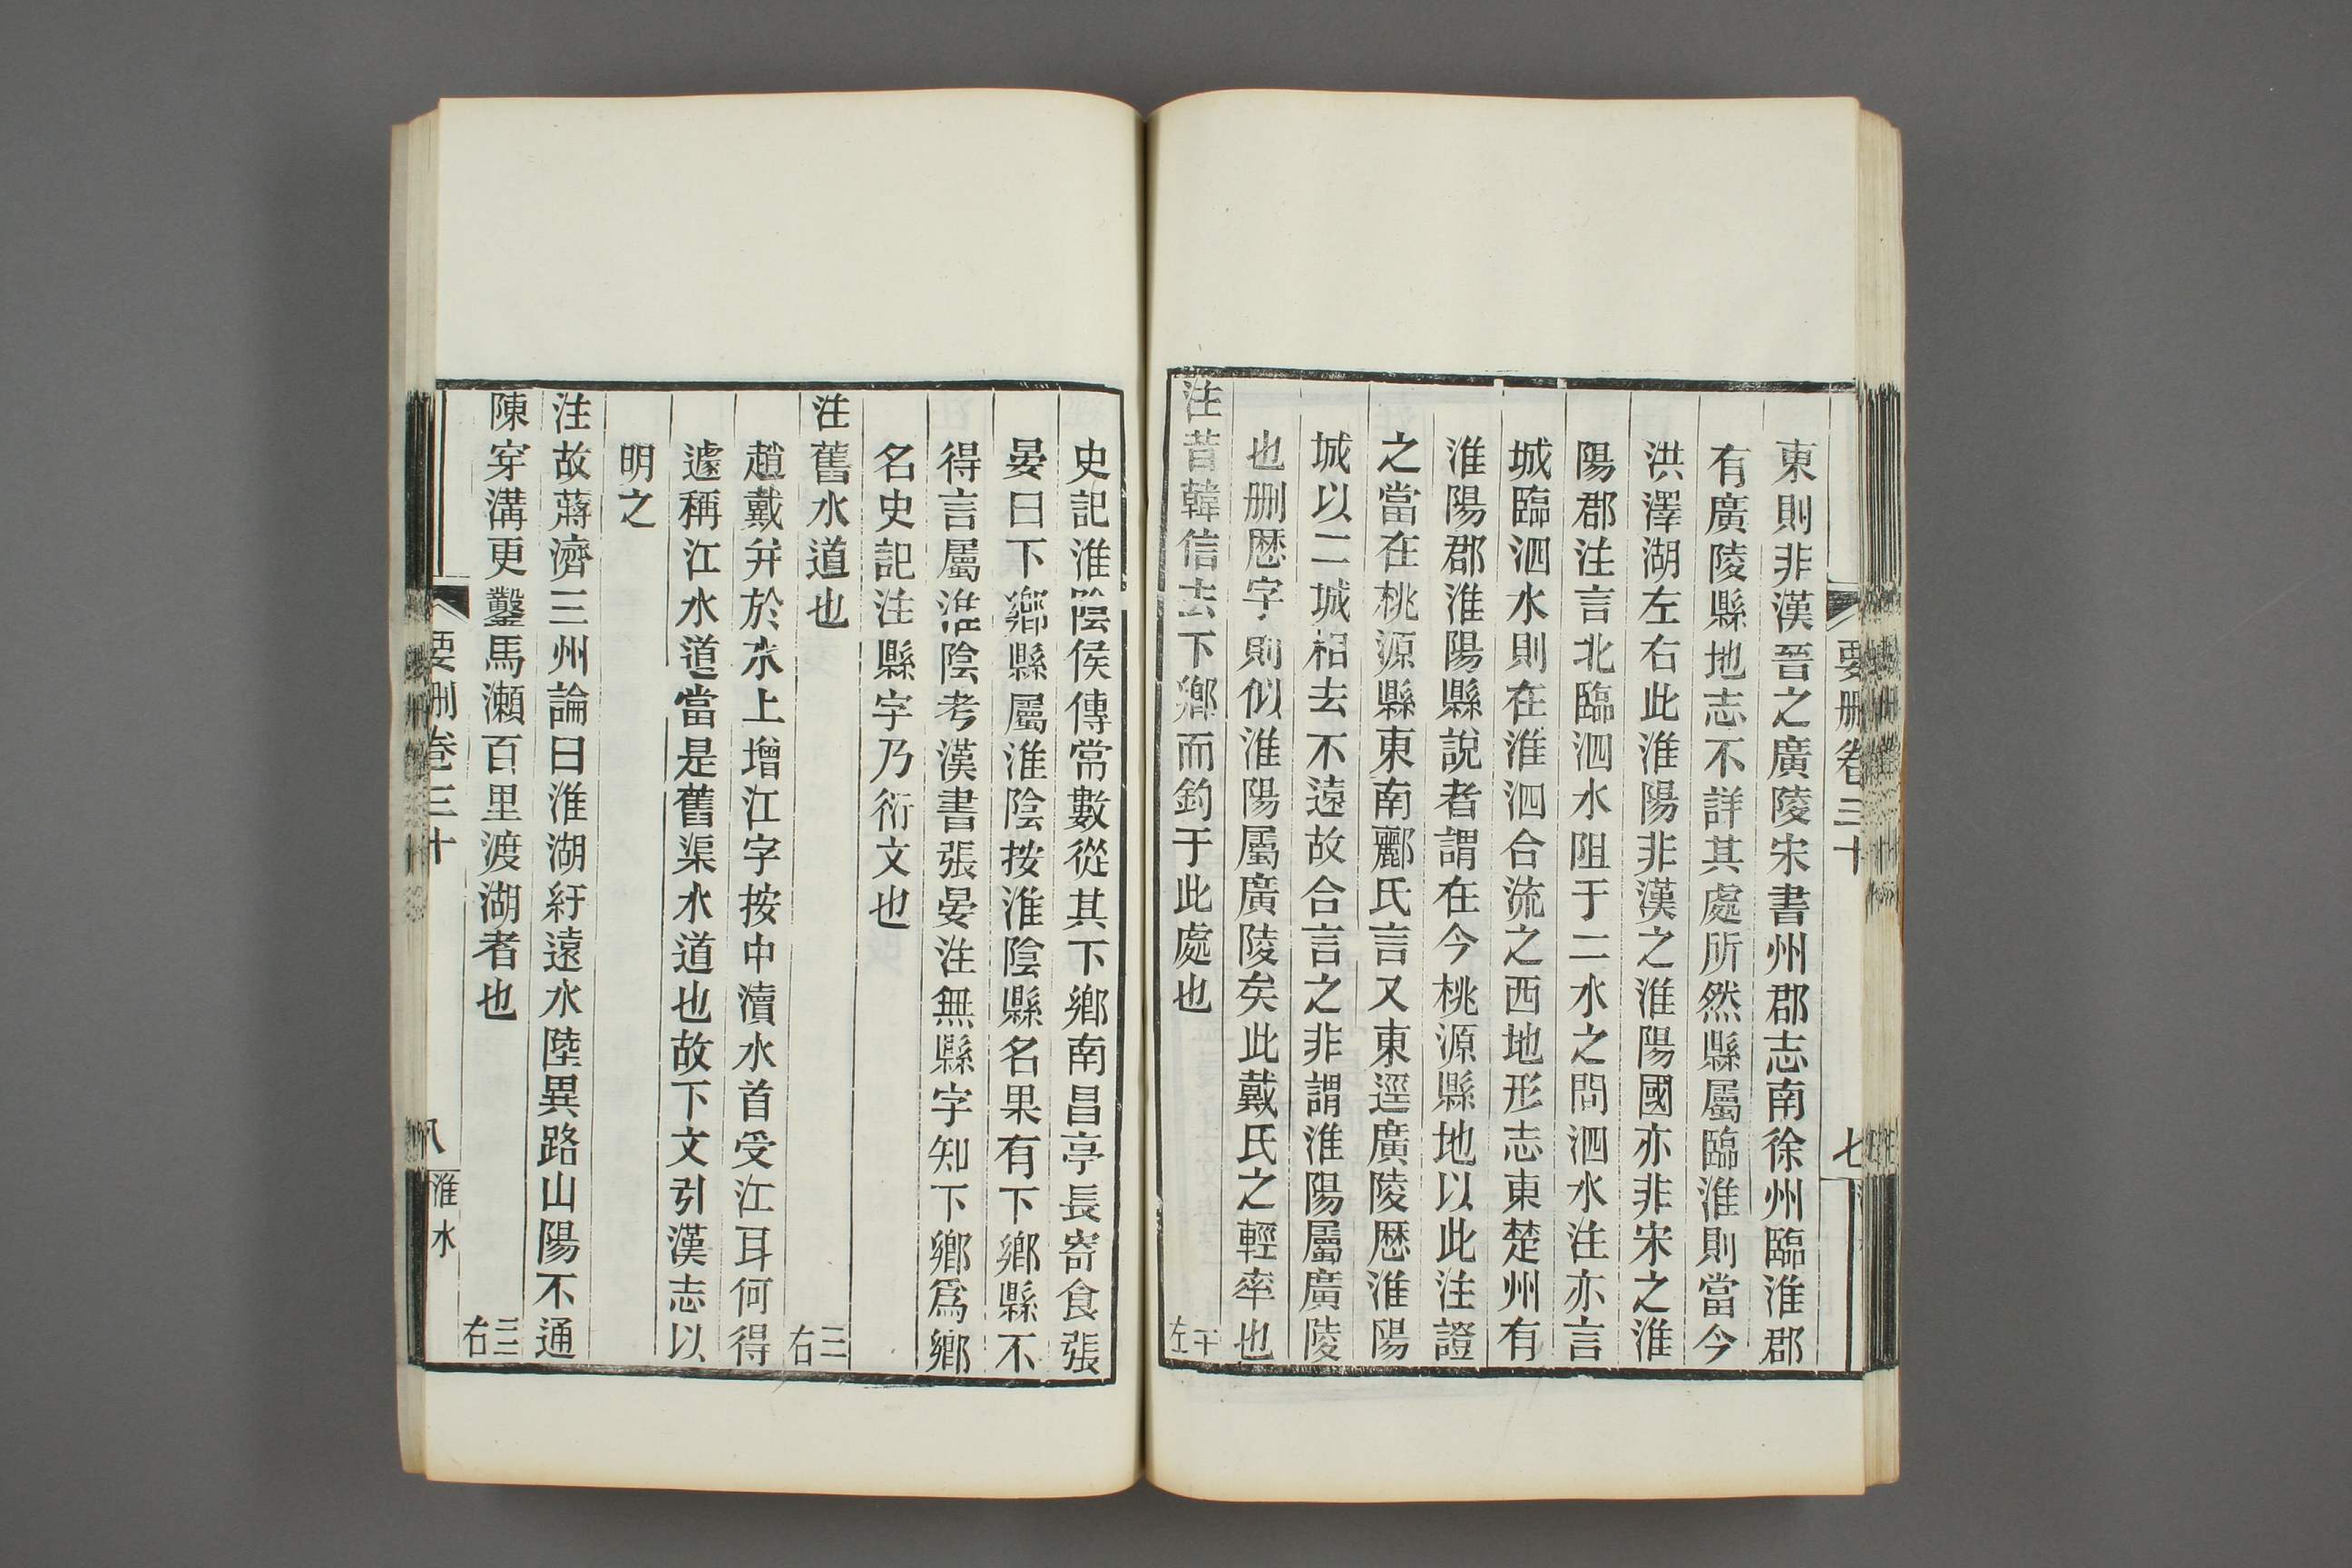 要刪卷三十
七
東則非漢晉之廣陵宋書州郡志南徐州臨淮郡
有廣陵縣地志不詳其處所然縣屬臨淮則當今
洪澤湖左右此淮陽非漢之淮陽國亦非宋之淮
陽郡注言北臨泗水阻于二水之間泗水注亦言
城臨泗水則在淮泗合流之西地形志東楚州有
淮陽郡淮陽縣說者謂在今桃源縣地以此注證
之當在桃源縣東南酈氏言又東逕廣陵歷淮陽
城以二城相去不遠故合言之非謂淮陽屬廣陵
也刪歷字則似淮陽屬廣陵矣此戴氏之輕率也
注昔韓信去下鄉而釣于此處也 左
史記淮陰侯傳常數從其下鄉南昌亭長寄食張
晏曰下鄉縣屬淮陰按淮陰縣名果有下鄉縣不
得言屬淮陰考漢書張晏注無縣字知下鄉爲鄉
名史記注縣字乃衍文也
注舊水道也 三右
趙戴幷於水上增江字按中瀆水首受江耳何得
遽稱江水道當是舊渠水道也故下文引漢志以
明之
注故蔣濟三州論曰淮湖紆遠水陸異路山陽不通
陳穿溝更鑿馬瀨百里渡湖者也 三右
要刪卷三十
八
淮水